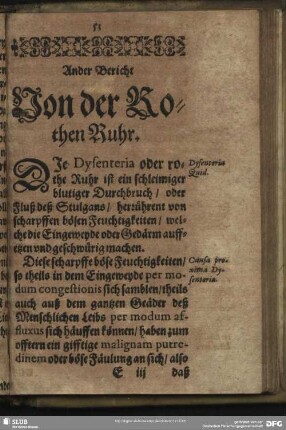 53
Ander Bericht
Von der Ro-
then Ruhr.
DJe Dysenteria oder ro-
the Ruhr ist ein schleimiger
blutiger Durchbruch / oder
Fluß deß Stulgans / herrührent von
scharpffen bösen Feuchtigkeiten / wel-
che die Eingeweyde oder Gedärm auff-
etzen vnd geschwürig machen.
Dysenteria
Quid.
Diese scharpffe böse Feuchtigkeiten /
so theils in dem Eingeweyde per mo-
dum congestionis sich samblen / theils
auch auß dem gantzen Geäder deß
Menschlichen Leibs per modum af-
fluxus sich häuffen können / haben zum
offtern ein gifftige malignam putre-
dinem oder böse Fäulung an sich / also
Causa pro-
xima Dy-
senteriæ.
E iij
daß
SLUB
DFG